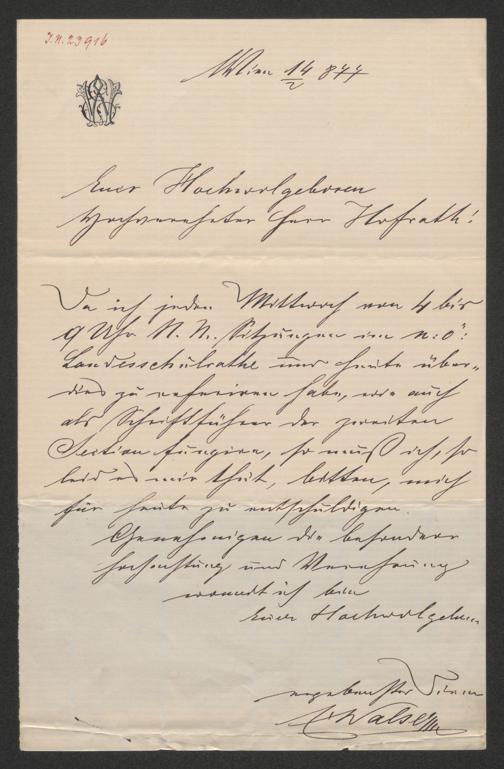 I.N. 23916
Wien 14/2 877
Euer Hochwolgeboren
Hochverehrter Herr Hofrath!
Da ich jeden Mittwoch von 4 bis
9 Uhr N. M. Sitzungen im n: ö:
Landesschulrathe und heute über-
dies zu referiren habe, wie auch
als Schriftführer der zweiten
Section fungire, so muß ich, so
leid es mir thut, bitten, mich
für heute zu entschuldigen.
Genehmigen die besondere
Hochachtung und Verehrung
womit ich bin
Euer Hochwolgeboren
ergebenster Diener
Walser